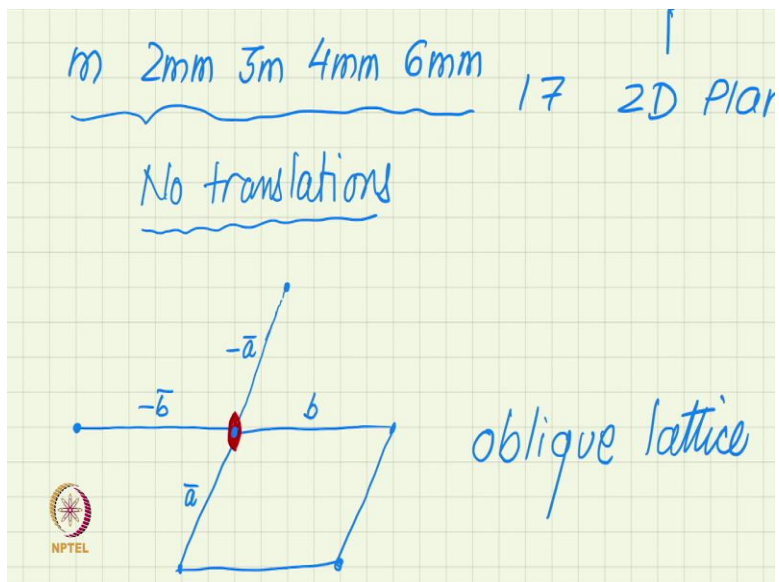 m 2mm 3m 4mm 6mm 17 2D Plan
No translations
-a̅
-b̅ b
oblique lattice
a̅
NPTEL